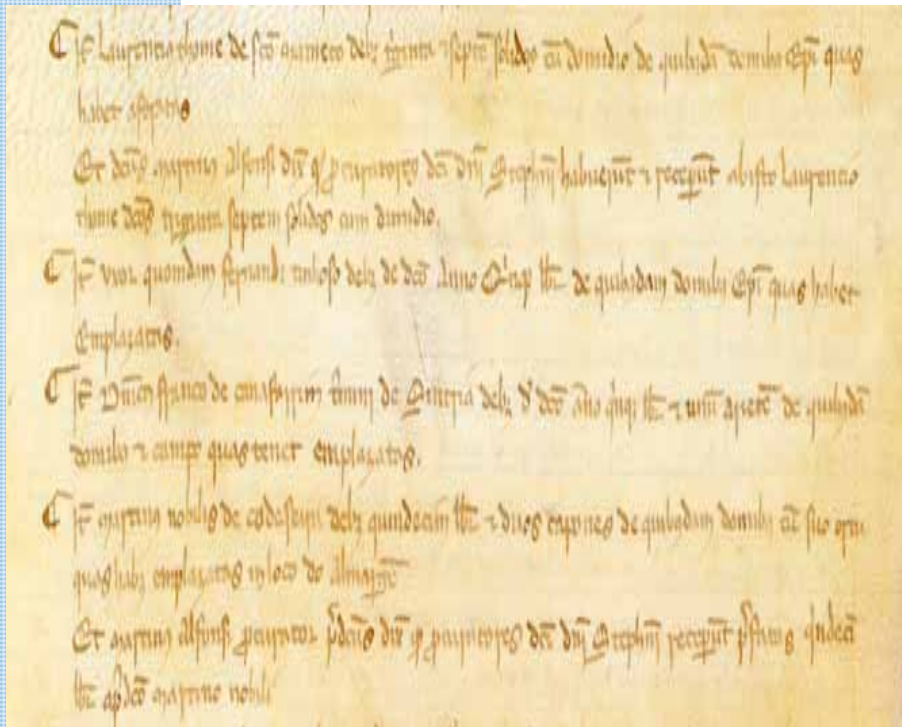 ¶ It̄ Laurentio thome de sc̄o mameto debꝫ triginta ⁊ septē solidos cū dimidio de quibusdā domibꝫ Epī quas
habet
Et dc̄us martinus alfonsi dix̄ qꝫ procuratores dc̄i dn̄i Stephani habuerūt ⁊ receperūt ab isto laurencio
thome dc̄os triginta septem solidos cum dimidio.
¶ It̄ vxor quondam fernandi debꝫ de dc̄o Anno quinqꝫ lb̄r de quibusdam domibꝫ Epī quas habet
Emplazatas.
¶ It̄ Dn̄icus franco de termini de Sintria debꝫ dc̄o año quinqꝫ lb̄r ⁊ unū de quibusdā
domibꝫ ⁊ campo quas tenet emplazatas.
¶ It̄ martinus nobilis de debꝫ quindecim lb̄r ⁊ duos capones de quibusdam domibꝫ cū suo
quas habꝫ emplazatas in loco de
Et martinus alfonsi procurator p̄dc̄us dix̄ qꝫ procuratores dc̄i dn̄i Stephani receperūt p̄fatas quindecī
lb̄r dc̄o martino nobili